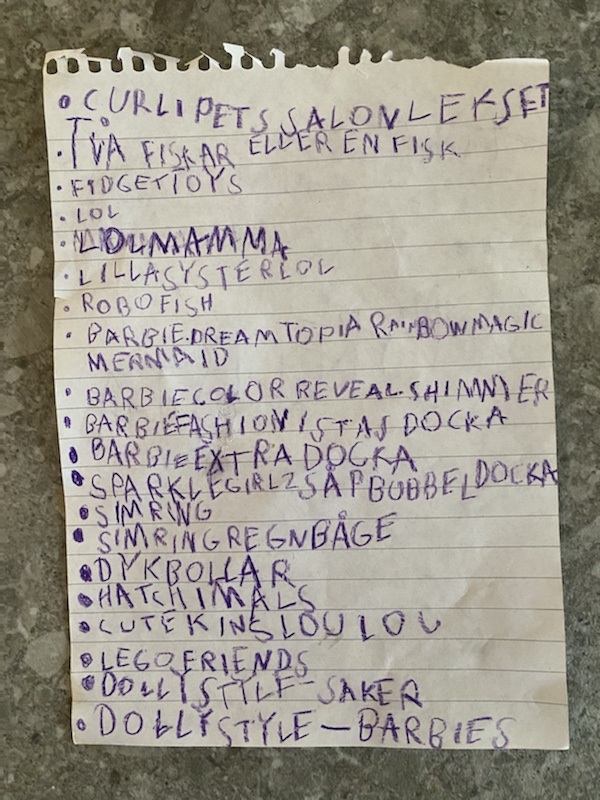 • CURLI PETS SALON LEKSET
• TVÅ FISKAR ELLER EN FISK
• FIDGETTOYS
• LOL
• LOLMAMMA
• LILLASYSTER LOL
• ROBO FISH
• BARBIE.DREAMTOPIA RAINBOW MAGIC
MERMAID
• BARBIE COLOR REVEAL.SHIMMER
• BARBIE FASHIONISTAS DOCKA
• BARBIE EXTRA DOCKA
• SPARKLEGIRLZ SÅPBUBBEL DOCKA
• SIMRING
• SIMRING REGNBÅGE
• DYKBOLLAR
• HATCHIMALS
• CUTEKINS LOULOU
• LEGO FRIENDS
• DOLLYSTYLE-SAKER
• DOLLYSTYLE-BARBIES